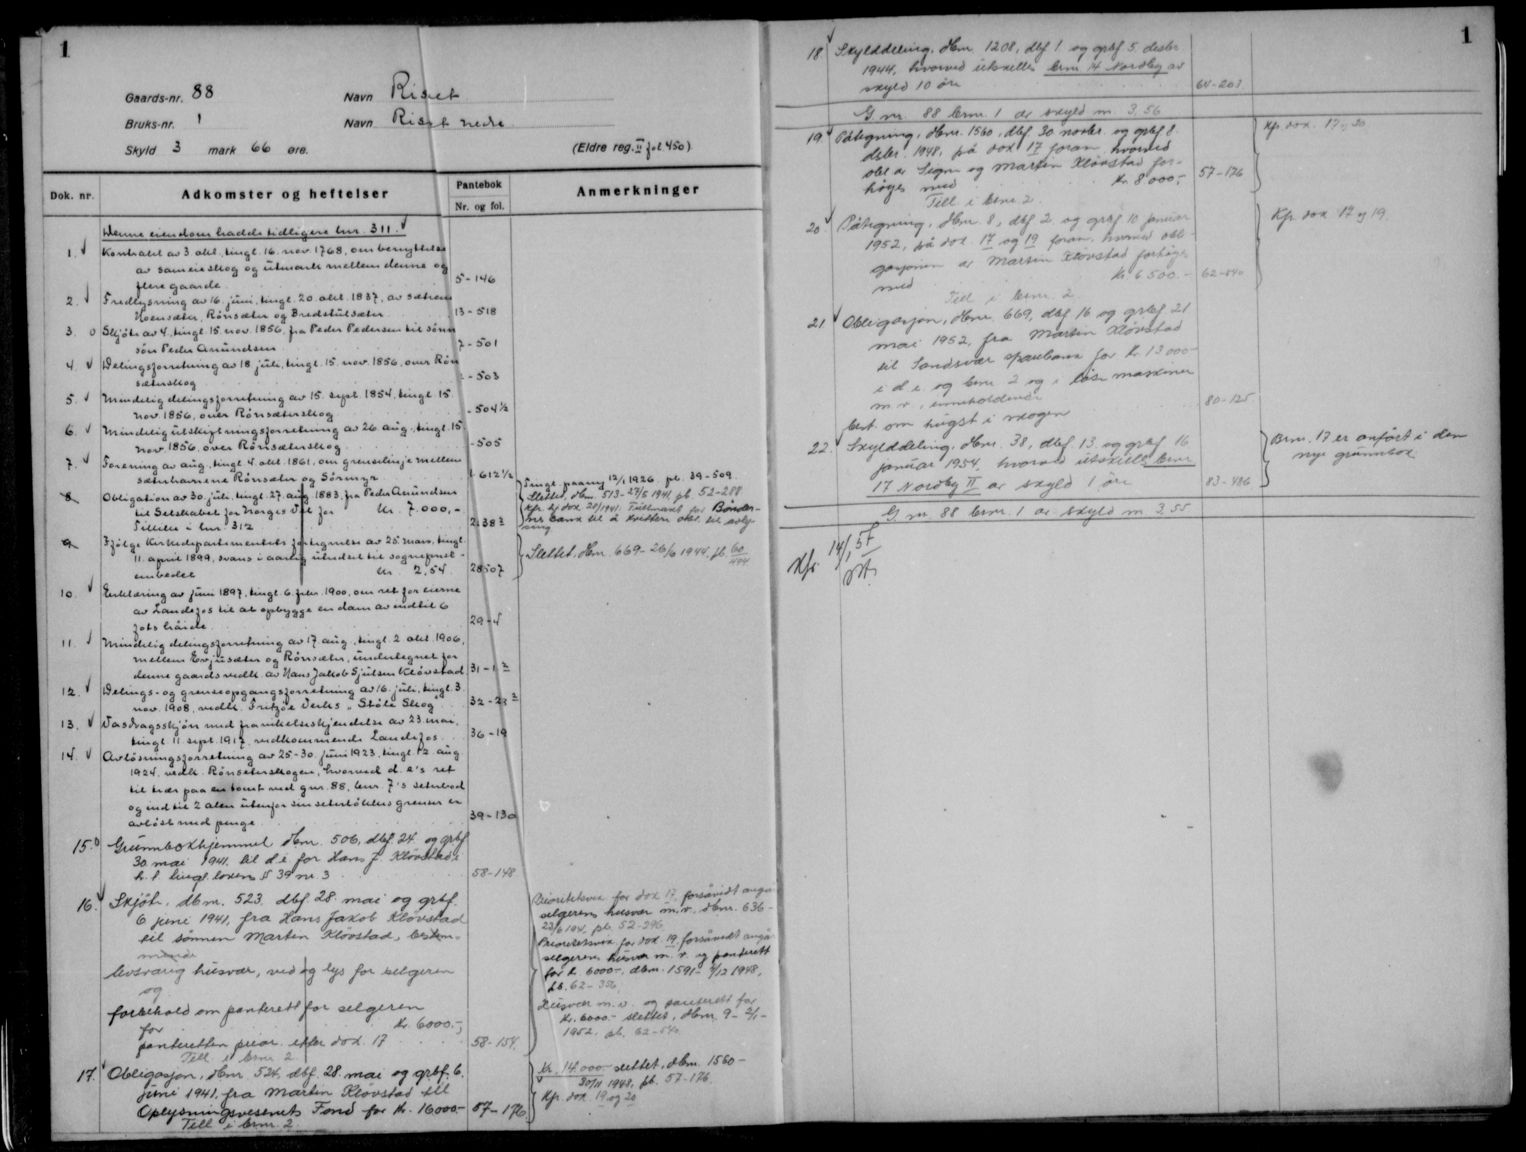 1
Gaards-nr. 88 Navn Riset
Bruks-nr. 1 Navn Riset nedre
Skyld 3 mark 66 øre. (Eldre reg. II fol 450)
Dok. nr. Adkomster og heftelser Pantebok Nr. og fol. Anmerkninger
Denne eiendom hadde tidligere lnr. 311.
1. Kontrakt av 3 okt., tingl. 16. nov. 1768, om benyttelse
av sameieskog og utmark mellem denne og
flere gaarde 5-146
2. Fredlysning av 16. juni, tingl. 20. okt. 1837, av sætrene
Rønsæter og Bredstulsæter 13-518
3. o Skjøte av 4., tingl. 15. nov. 1856, fra Peder Pedersen til sønne
søn Peder Amundsen 7-501
4. Delingsforretning av 18 juli, tingl. 15. nov. 1856, over Røn
sæterskog -503
5. Mindelig delingsforretning av 15. sept. 1854, tingl. 15.
nov. 1856, over Rønsæterskog -504½
6. Mindelig utskiftningsforretning av 26 aug., tingl. 15.
nov. 1856, over Rønsæterskog -505
7. Forening av aug., tingl. 4. okt. 1861, om grenselinje mellem
sæterhavnene Rønsæter og 612½
8. Obligation av 30. juli, tingl. 27. aug 1883, fra Peder Amundsen
til Selskabet for Norges Vel for Kr. 7.000,-
Tillike i lnr 312
Tingl. paany 12/1 1926. pb. 39-509.
Slettet, dbnr. 513-27/5 1941, pb. 52-288
9. Ifølge Kirkedepartementets fortegnelse av 25 mars, tingl.
11. april 1899, svares i aarlig utredsel til sogneprest-
embedet Kr. 2,54. 28 507
Slettet. dbnr. 669-26/6 1944, pb. 60/494
10. Erklæring av juni 1897, tingl. 6. febr. 1900, om ret for eierne
av Landefos til at opbygge en dam av indtil 6
fots høide 29-4
11. Mindelig delingsforretning av 17 aug., tingl. 2 okt. 1906,
mellem Evjusæter og Rønsæter, undertegnet for
denne gaards vedk. av Hans Jakob Gjulsen Kløvstad 31-1
12. Delings- og grenseopgangsforretning av 16. juli, tingl. 3.
nov. 1908, vedk. Fritzøe Verks "Støle Skog" 32-23
13. Vasdragsskjøn med fravikelseskjendelse av 23. mai,
tingl. 11. sept. 1917, vedkommende Landefos 36-19
14. Avløsningsforretning av 25-30. juni 1923, tingl. 12. aug.
1924, vedk. Rønseterskogen, hvorved d. e's ret
til trær paa en tomt ved gnr. 88, bnr. 7's seterbod
og indtil 2 alen utenfor sin seterløkkes grenser er
avløst med penge 39-130
15. o Grunnbokhjemmel dbnr. 506, dbf. 24. og grbf.
30. mai 1941, til d. e. for Hans J. Kløvstad i
h. t. tingl. loven § 39 nr. 3 58-148
16. Skjøte, dbnr. 523, dbf. 28. mai og grbf.
6 juni 1941, fra Hans Jakob Kløvstad
til sønnen Martin Kløvstad, bestem-
mende
livsvarig husvær, ved og lys for selgeren
og
forbehold om panterett for selgeren
for Kr. 6000.-;
panteretten prior. etter dok. 17 58-154.
Till. i bnr. 2
Prioritetsvik. for dok 17, forsåvidt angår
selgerens husvær m.v. dbnr. 636-
23/6 1941, pb. 52-296
Prioritetsvik. for dok. 19 forsåvidt angår
selgerens husvær m. v. og panterett
for kr. 6000.-, dbnr. 1591- 1948,
pb. 62-356
Husvær m.v. og panterett for
kr. 6000.- slettet, dbnr. 9-2/1-
1952, pb. 62-540
17. Obligasjon, dbnr. 524, dbf. 28. mai og grbf. 6.
juni 1941, fra Martin Kløvstad til
Oplysningsvesenets Fond for kr. 16000.- 57-176
Till. i bnr. 2.
Kr. 14000.- slettet, dbnr. 1560-
30/11 1948, pb. 57-176.
Kfr. dok. 19 og 20
1
18 Skylddeling, dbnr. 1208, dbf 1 og grbf 5. desbr
1944, hvorved utskilles bnr 14 Nordby av
skyld 10 øre 64-203
G.nr. 88 bnr. 1 av skyld m. 3,56
19. Påtegning, dbnr. 1560, dbf. 30 novbr. og grbf 8.
desbr. 1948, på dok 17 foran, hvorved
obl. av Martin Kløvstad for-
høyes med kr. 8000,- 57-176
Till. i bnr. 2.
Kfr. dok. 17 og 20
20. Påtegning, dbnr. 8, dbf 2. og grbf 10 januar
1952, på dok. 17 og 19 foran, hvorved obli-
gasjonen av Martin Kløvstad forhøyes
med kr. 6500.- 62-540
Till. i bnr. 2
Kfr. dok. 17 og 19.
21. Obligasjon, dbnr. 669, dbf 16 og grbf 21
mai 1952, fra Martin Kløvstad
til Sandsvær sparebank for kr. 13 000.-
i d. e. og bnr. 2 og i løse maskiner
m.v., inneholdende 80-125
best. om hugst i skogen
22. Skylddeling, dbnr. 38, dbf. 13. og grbf. 16
januar 1954, hvorved utskilles bnr
17 Nordby II av skyld 1 øre 83-486
Bnr. 17 er anført i den
nye grunnbok
G.nr. 88 bnr. 1 av skyld m 3,55
Kfr. 14/1 54